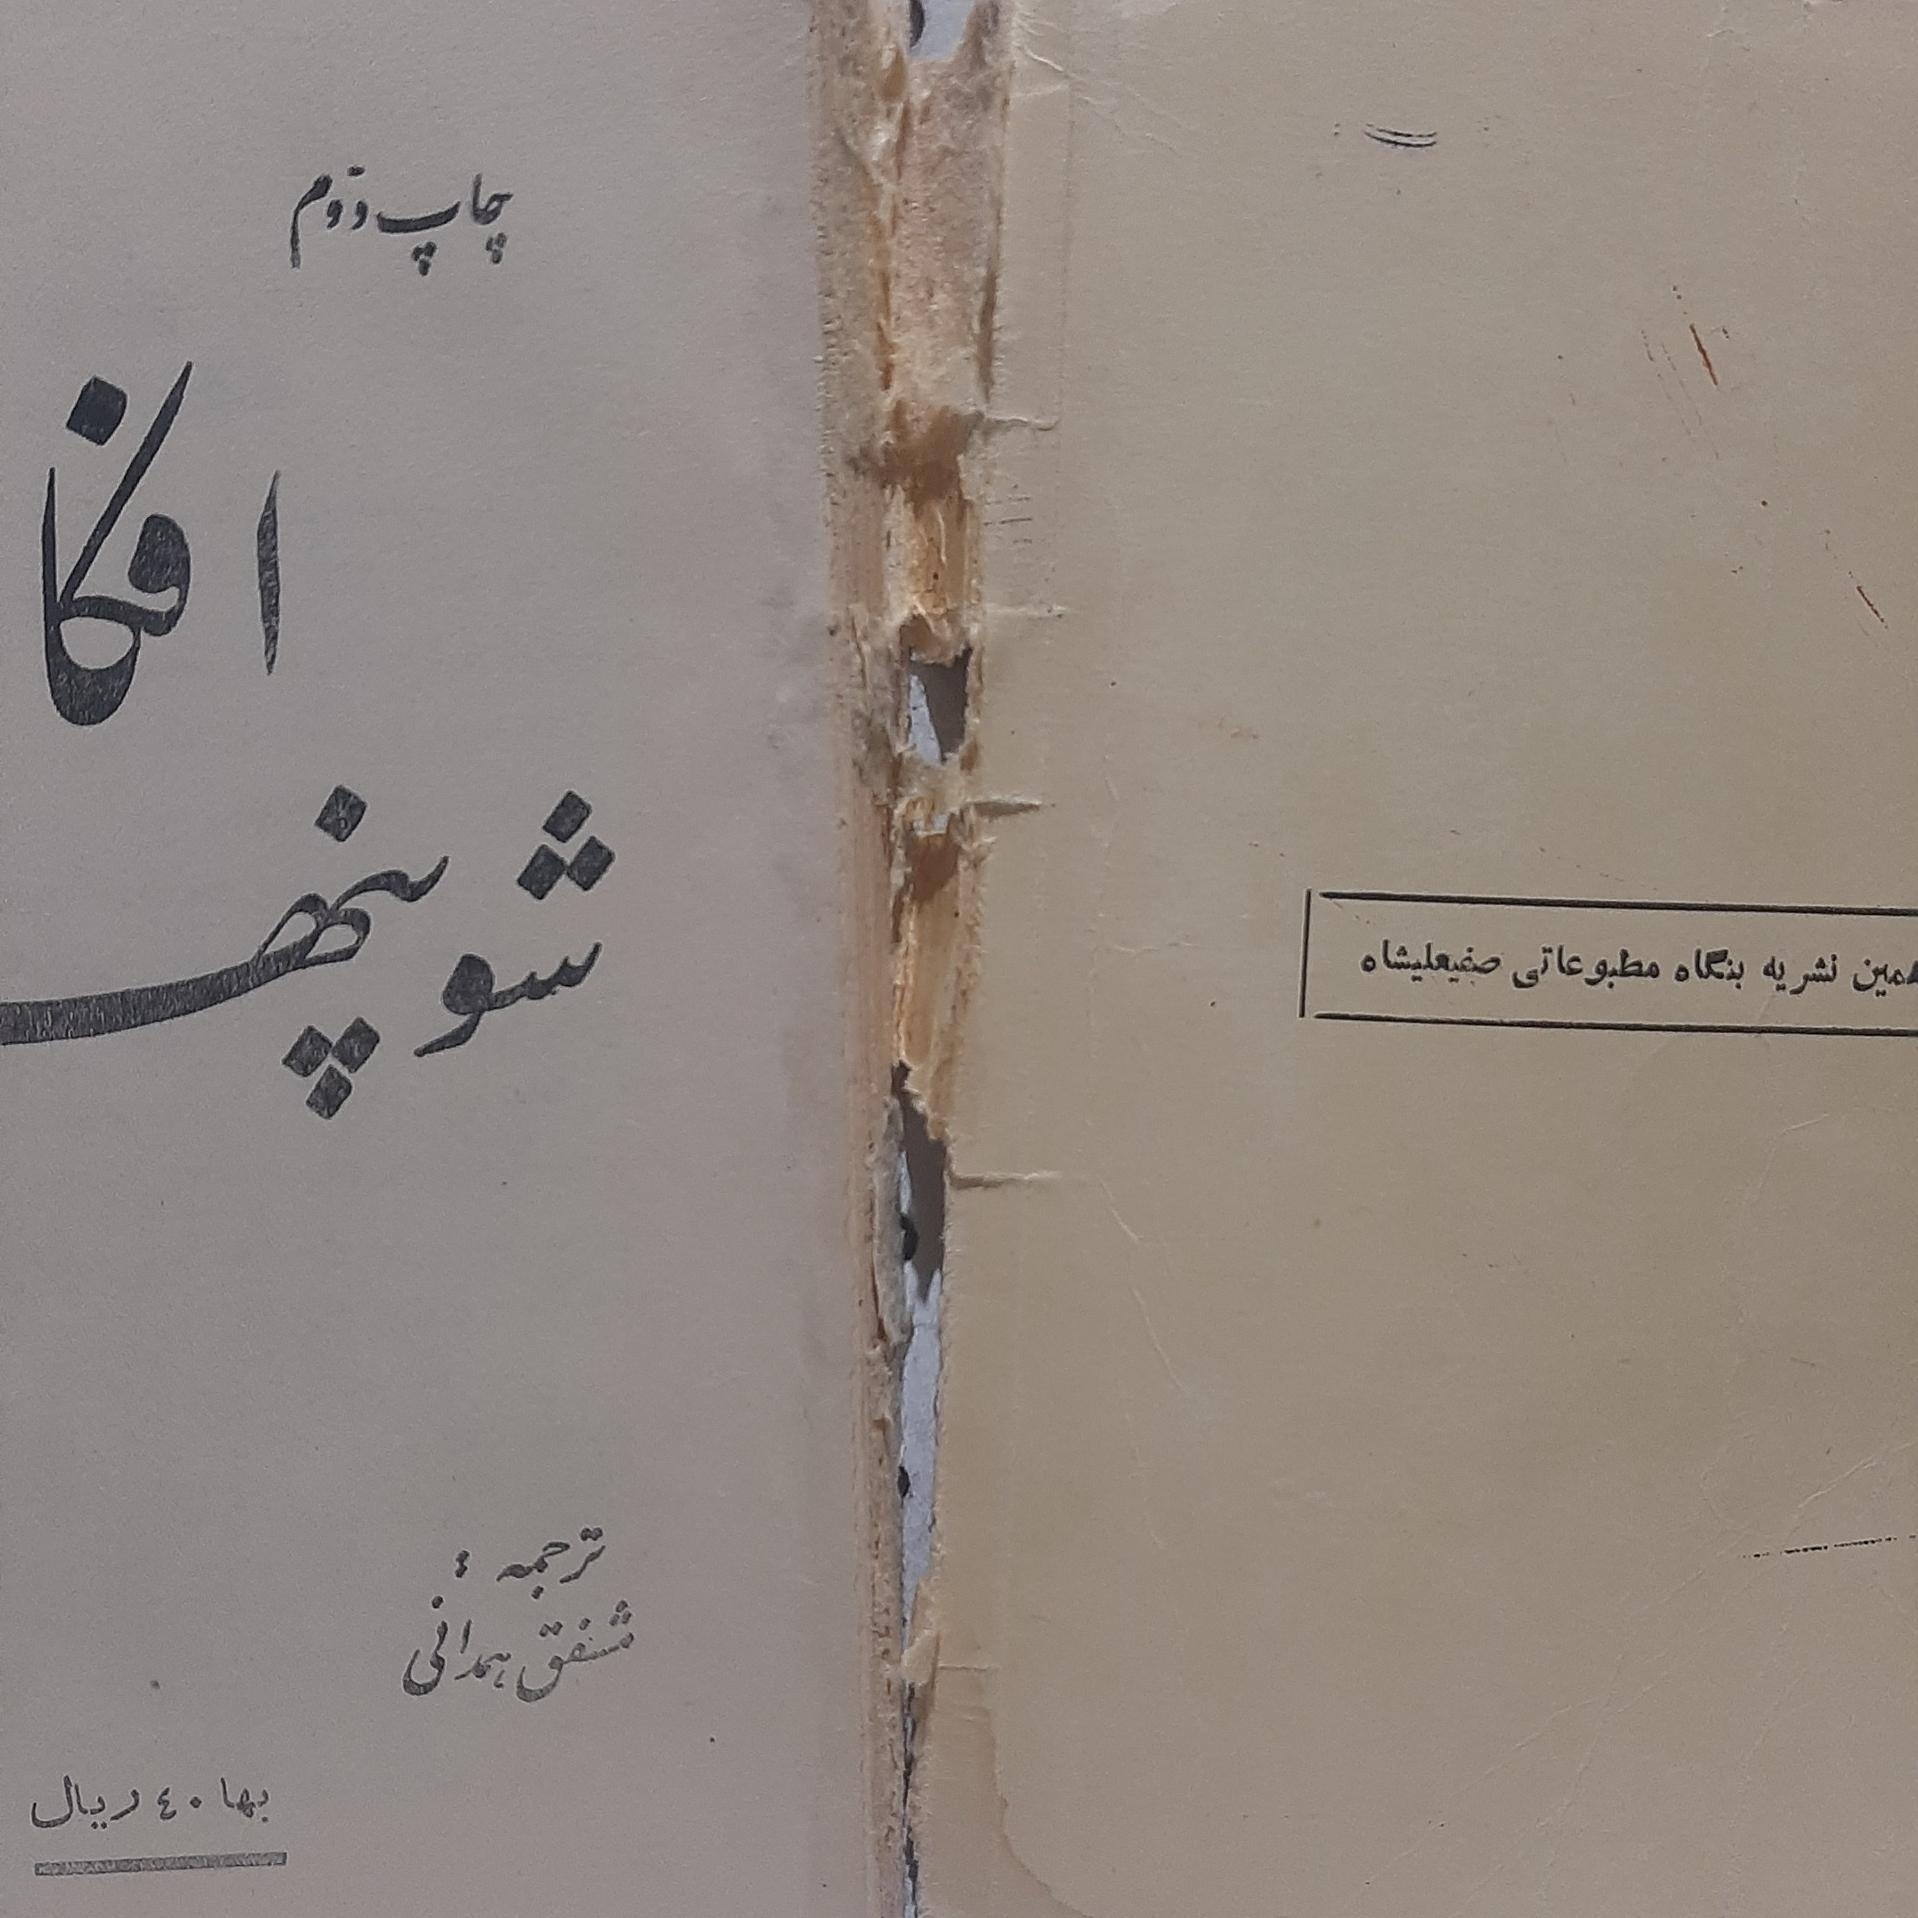 چاپ دوّم
افکا
شوپنهـ
ترجمه :
شفق همدانی
بها ٤٠ ریال
نشریه بنگاه مطبوعاتی صفیعلیشاه